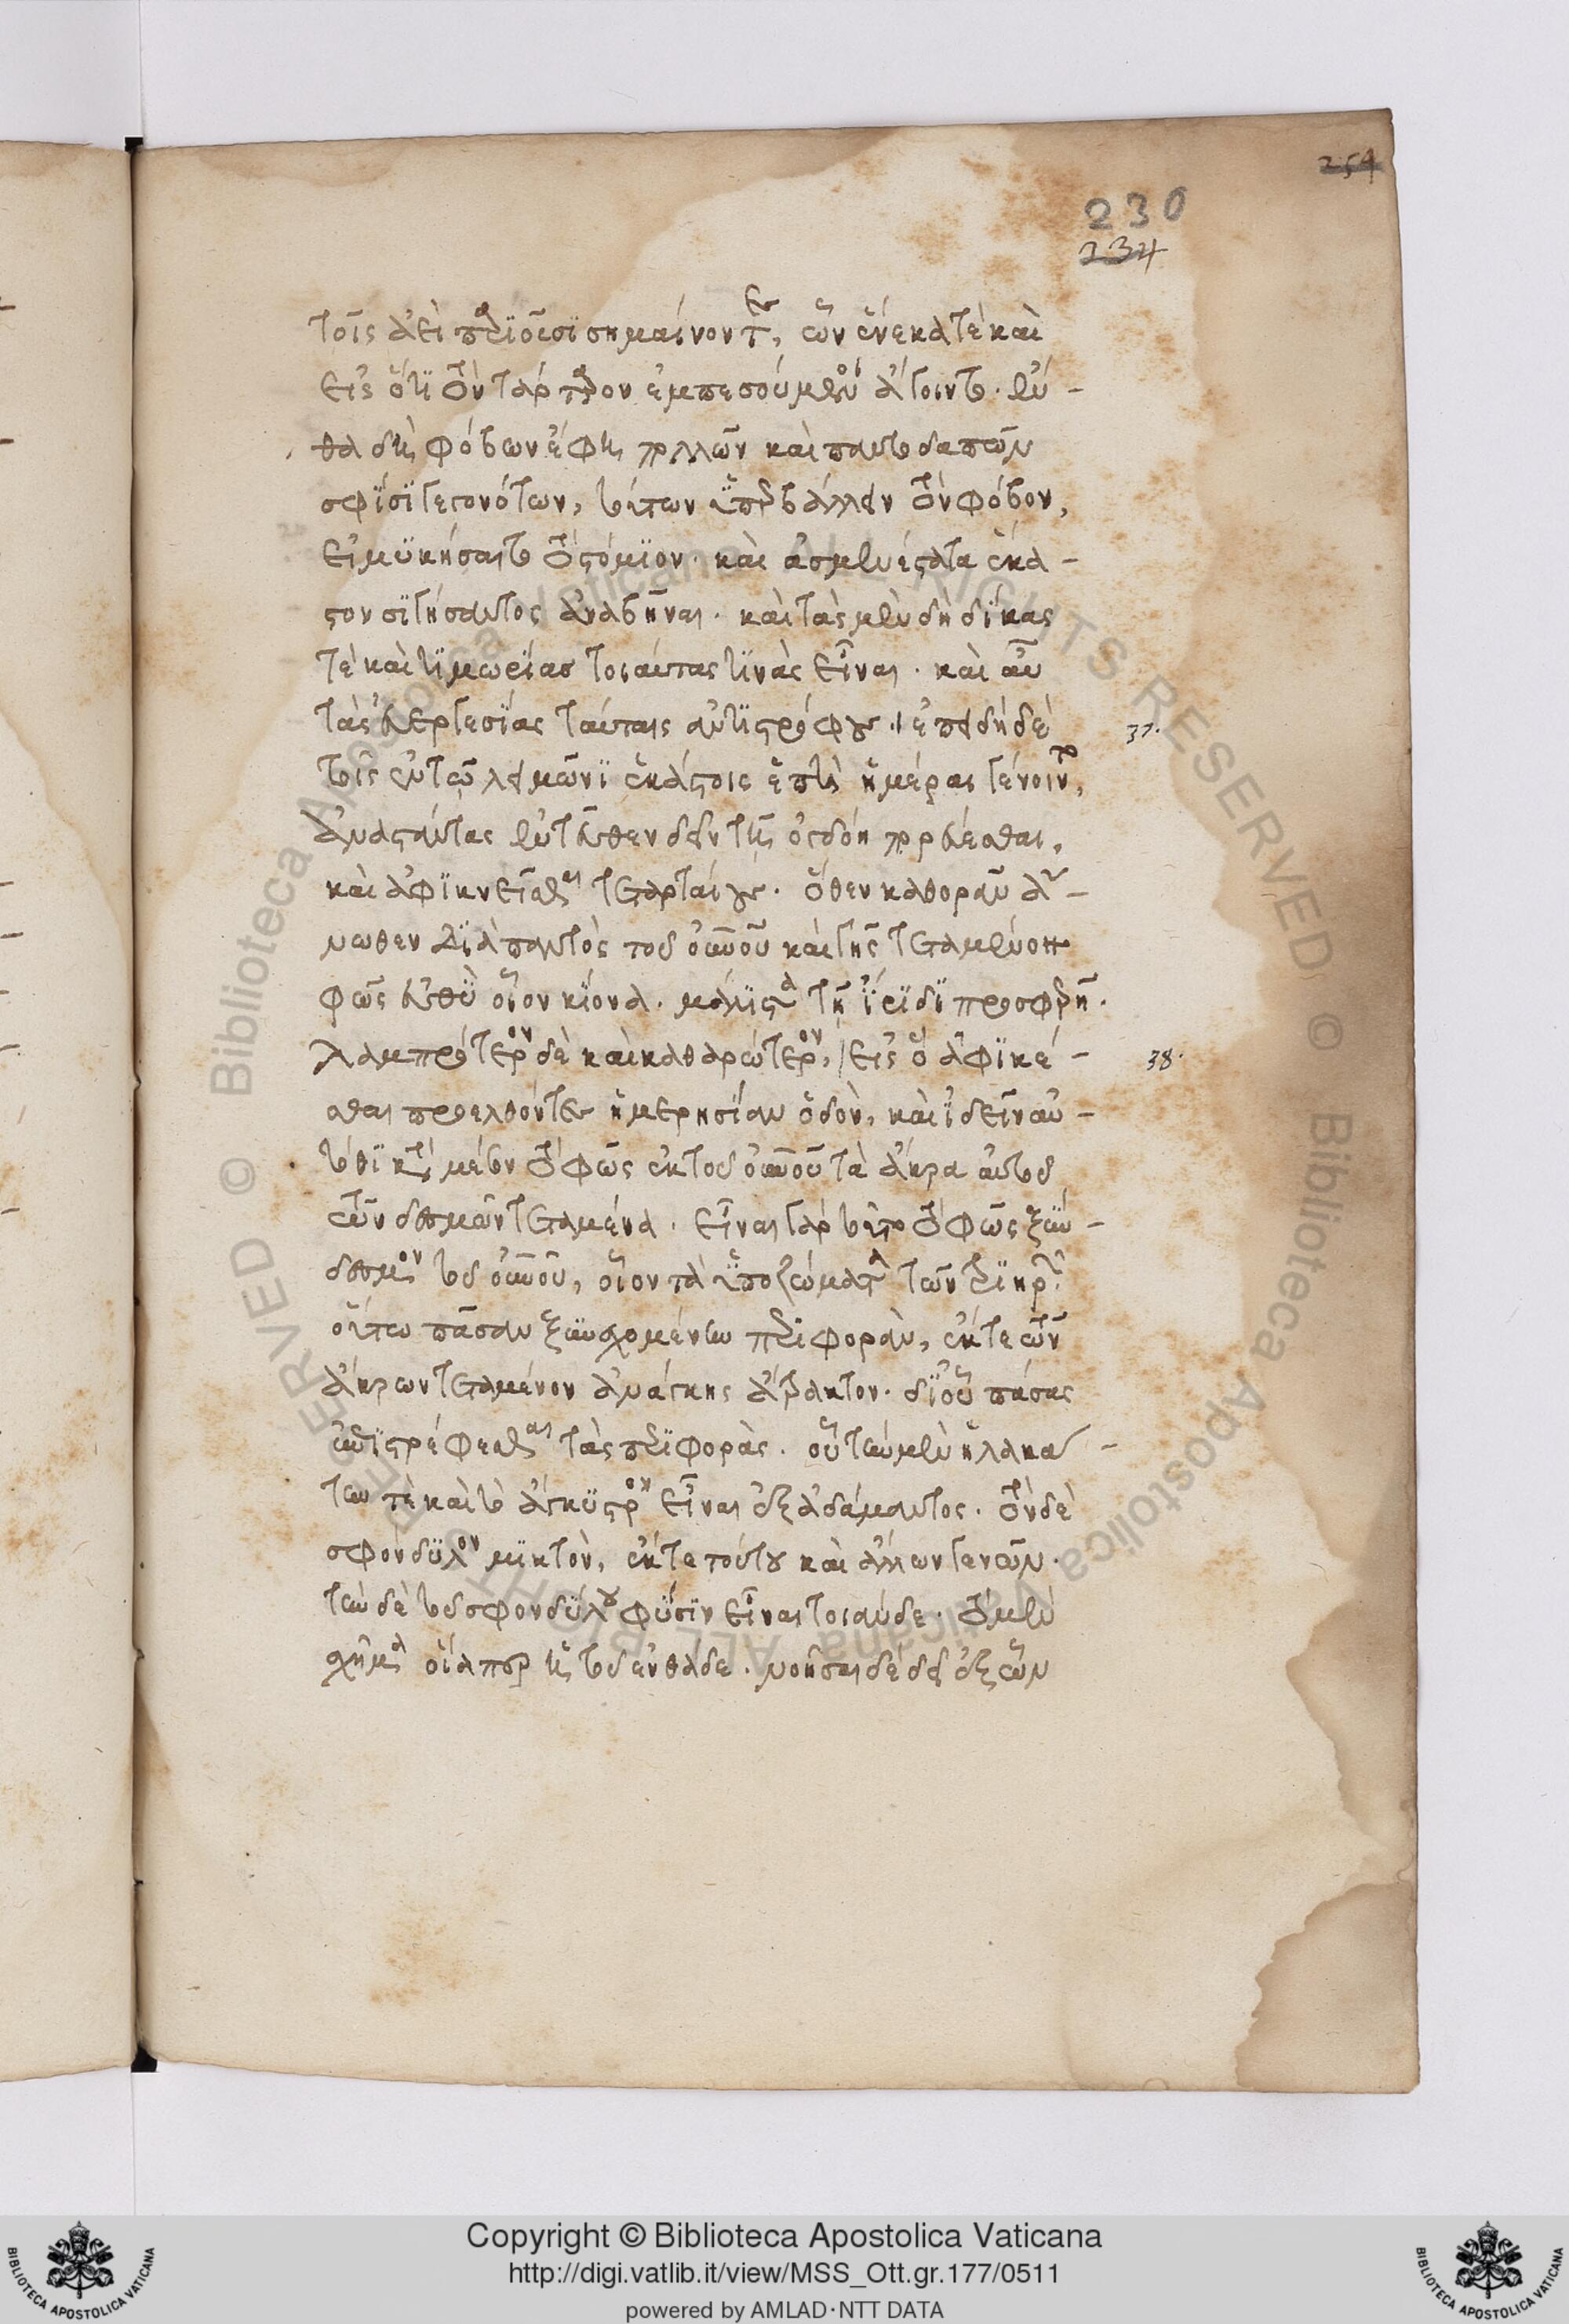 254
230
234
τοῖς ἀεὶ παριοῦσι σημαίνοντες, ὧν ἕνεκά τε καὶ
εἰς ὅτι τὸν τάρταρον ἐμπεσούμενοι ἄγοιντο. ἔν-
θα δὴ φόβων ἔφη πολλῶν καὶ παντοδαπῶν
σφίσι γεγονότων, τοῦτον ὑπερβάλλειν τὸν φόβον,
εἰ μυκήσαιτο τὸ στόμιον. καὶ ἀσμενέστατα ἕκα-
στον σιγήσαντος ἀναβῆναι. καὶ τὰς μὲν δὴ δίκας
τὲ καὶ τιμωρίας τοιαύτας τινὰς εἶναι. καὶ αὖ
τὰς εὐεργεσίας ταύταις ἀντιστρόφους. ἐπειδὴ δὲ 37.
τοῖς ἐν τῷ λειμῶνι ἑκάστοις ἑπτὰ ἡμέραι γένοιντο,
ἀναστάντας ἐντεῦθεν δεῖν τῇ ὀγδόῃ πορεύεσθαι,
καὶ ἀφικνεῖσθαι τεταρταίους. ὅθεν καθορᾶν ἄ-
νωθεν διὰ παντὸς τοῦ οὐρανοῦ καὶ γῆς τεταμένον
φῶς εὐθὺ οἷον κίονα. μάλιστα τῇ ἴριδι προσφερῆ.
λαμπρότερον δὲ καὶ καθαρώτερον, εἰς ὃ ἀφικέ- 38.
σθαι προελθόντες ἡμερησίαν ὁδὸν, καὶ ἰδεῖν αὐ-
τόθι κατὰ μέσον τὸ φῶς ἐκ τοῦ οὐρανοῦ τὰ ἄκρα αὐτοῦ
τῶν δεσμῶν τεταμένα. εἶναι γὰρ τοῦτο τὸ φῶς ξύν-
δεσμον τοῦ οὐρανοῦ, οἷον τὰ ὑποζώματα τῶν τριήρων
οὕτω πᾶσαν ξυνέχον τὴν περιφορὰν, ἔκ τε τῶν
ἄκρων τεταμένον ἀνάγκης ἄτρακτον. δι' οὗ πάσας
ἐπιστρέφεσθαι τὰς περιφορὰς. οὗ τὴν μὲν ἠλακά-
την τὲ καὶ τὸ ἄγκιστρον εἶναι ἐξ ἀδάμαντος. τὸν δὲ
σφόνδυλον μικτὸν, ἔκ τε τούτου καὶ ἄλλων γενῶν.
τὴν δὲ τοῦ σφονδύλου φύσιν εἶναι τοιάνδε. τὸ μὲν
σχῆμα οἵα περ ἡ τοῦ ἐνθάδε. νοῆσαι δὲ δεῖ ἐξ ὧν
Copyright © Biblioteca Apostolica Vaticana
http://digi.vatlib.it/view/MSS_Ott.gr.177/0511
powered by AMLAD·NTT DATA